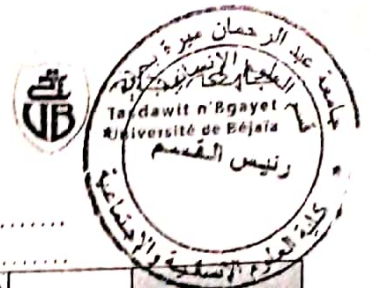 جامعة عبد الرحمان ميرة بجاية
قسم العلوم الإنسانية
Tasdawit n'Bgayet
Université de Béjaïa
رئيس القسم
كلية العلوم الإنسانية والإجتماعية
UB